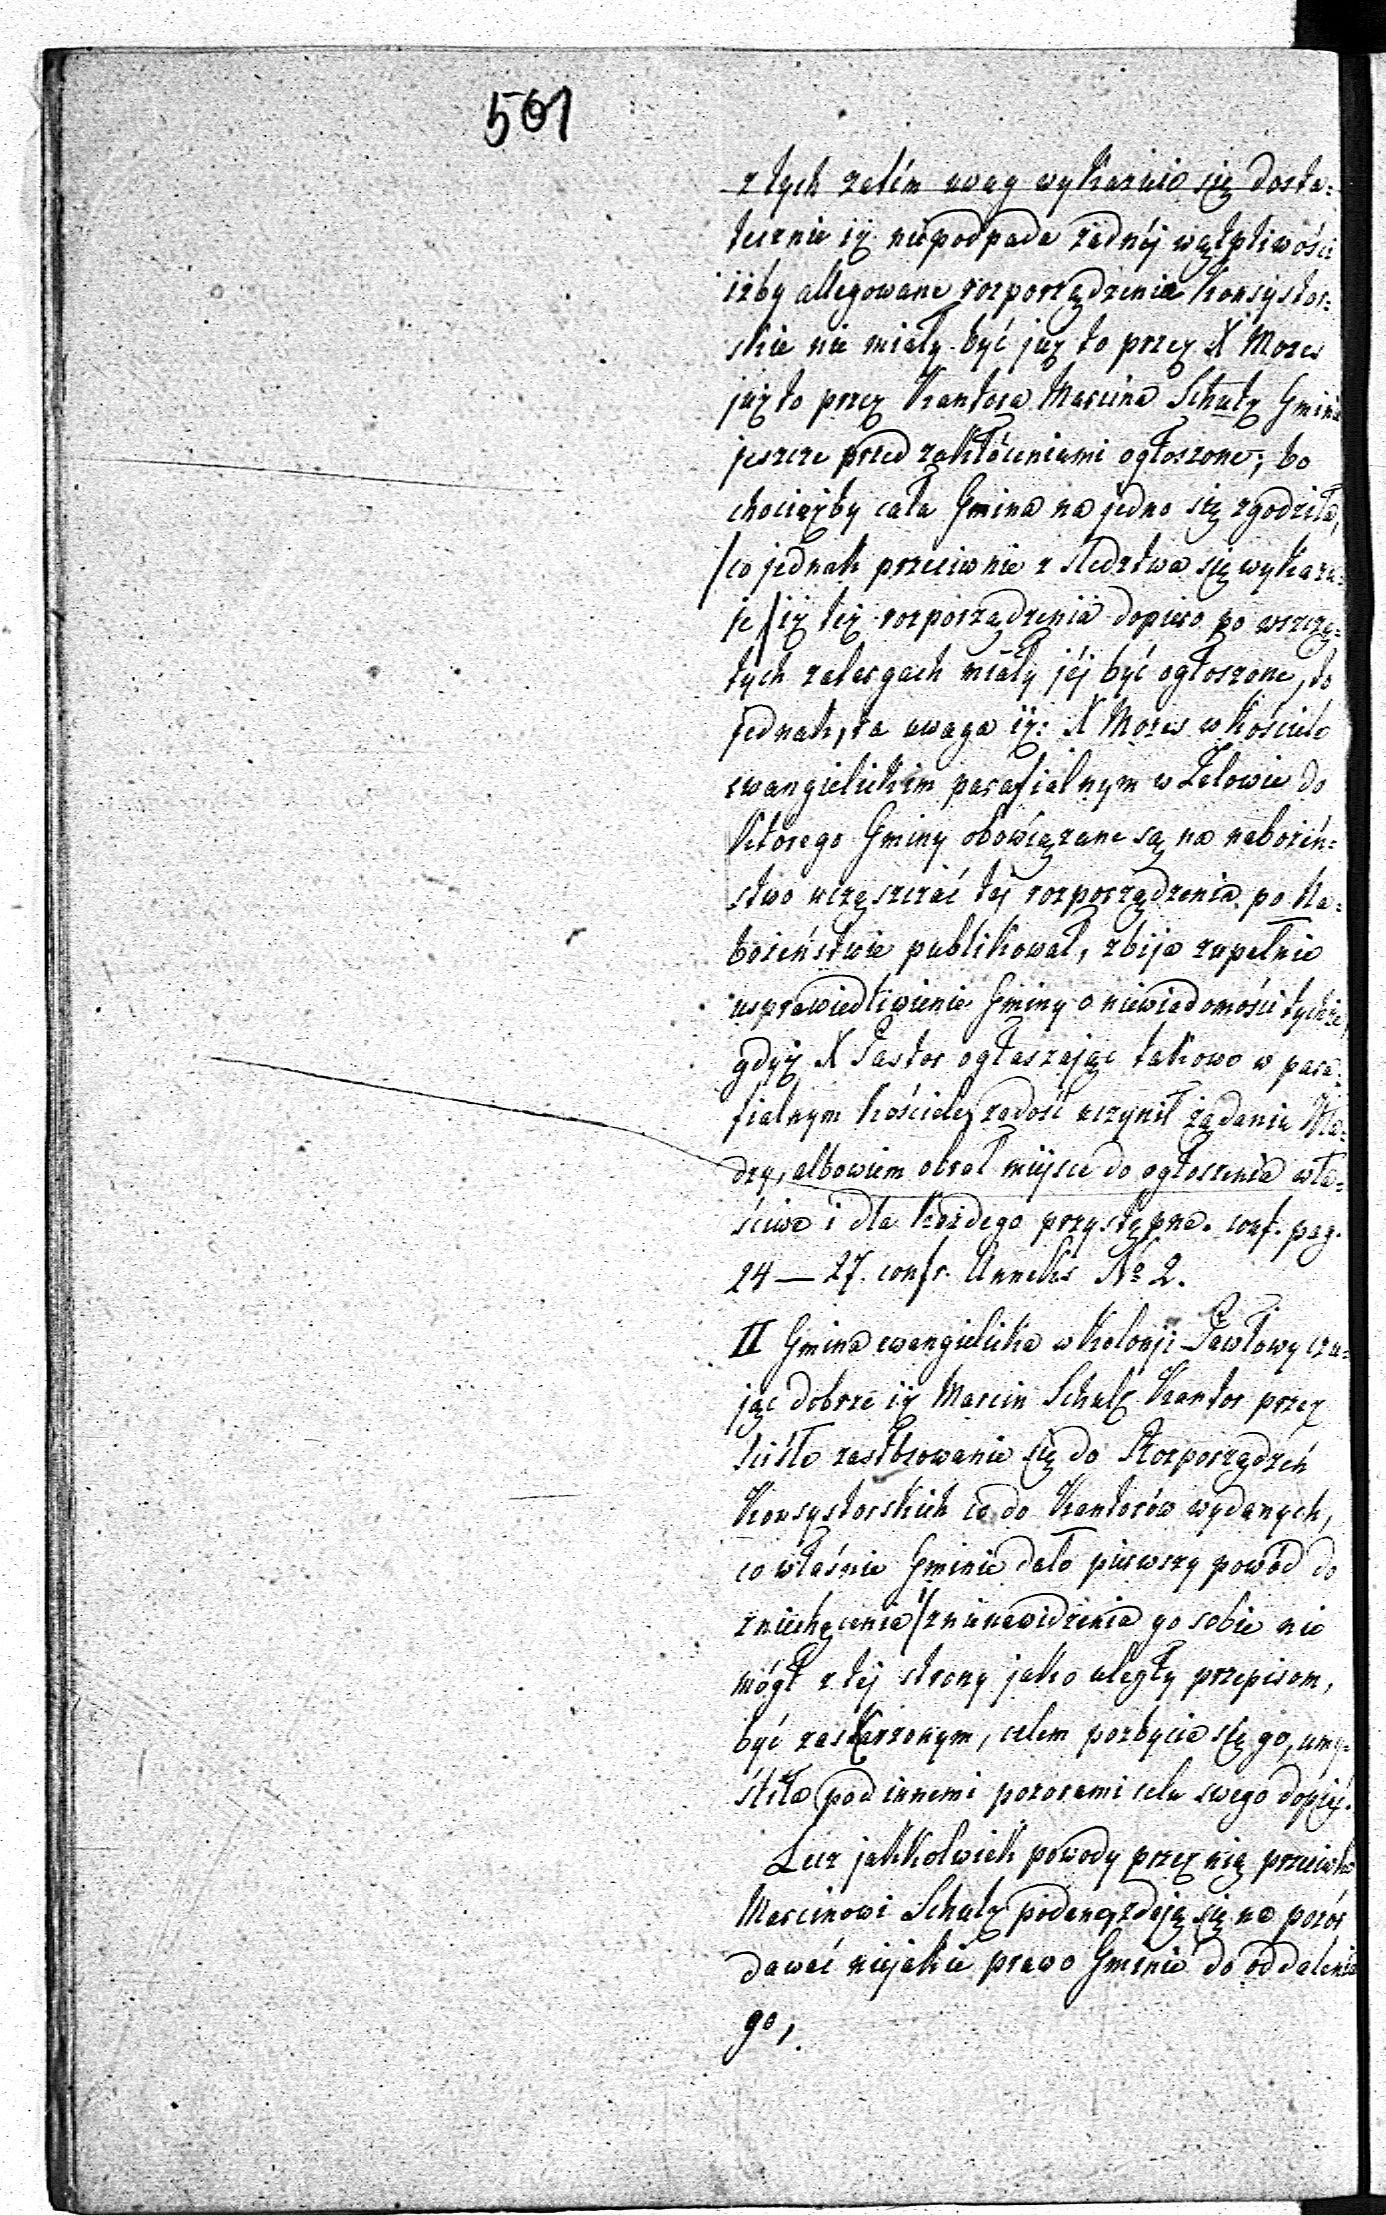 501
z tych zatém uwag wykazuie się dosta=
tecznie iż niepodpada żadnéj wątpliwości
iżby allegowane rozporządzenia Konsystor=
skie nie miały być już to przez X Mozes
już to przez Kantora Marcina Schultz Gminie
jeszcze przed zakłóceniami ogłoszone; bo
chociażby cała Gmina na jedno się zgodziła,
/co jednak przeciwnie z sledztwa się wykazu=
je/ iż też rozporządzenia dopiero po wszczę=
tych zatargach miały jéj być ogłoszone, to
jednak, ta uwaga iż: X Mozes w kościele
ewangielickim parafialnym w Zelowie do
którego Gminy obowiązane są na nabożeń=
stwo uczęszczać téj rozporządzenia po Na=
bożeństwie publikował, zbija zupełnie
usprawiedliwienie Gminy o niewiadomości tychże,
gdyż X Pastor ogłaszając takowe w para=
fialnym kościele, zadość uczynił żądaniu Wła=
dzy, albowiem obrał miejsce do ogłoszenia wła=
ściwe i dla każdego przystępne. conf. pag.
24 — 27. confr. Anneks № 2.
II Gmina ewangielicka w kolonji Pawłowy czu=
jąc dobrze iż Marcin Schultz Kantor przez
ściśłe zastosowanie się do Rozporządzeń
Konsystorskich co do Kantorów wydanych,
co właśnie Gminie dało pierwszy powód do
zniechęcenia /znienawidzenia go sobie nie
mógł z téj strony jako uległy przepisom,
być zaskarżonym, celem pozbycia się go, umy=
śliła pod innemi pozorami celu swego dopiąć.
Lecz jakkolwiek powody przez nią przeciwko
Marcinowi Schultz podane, zdają się na pozór
dawać niejakie prawo Gminie do oddalenia
go,